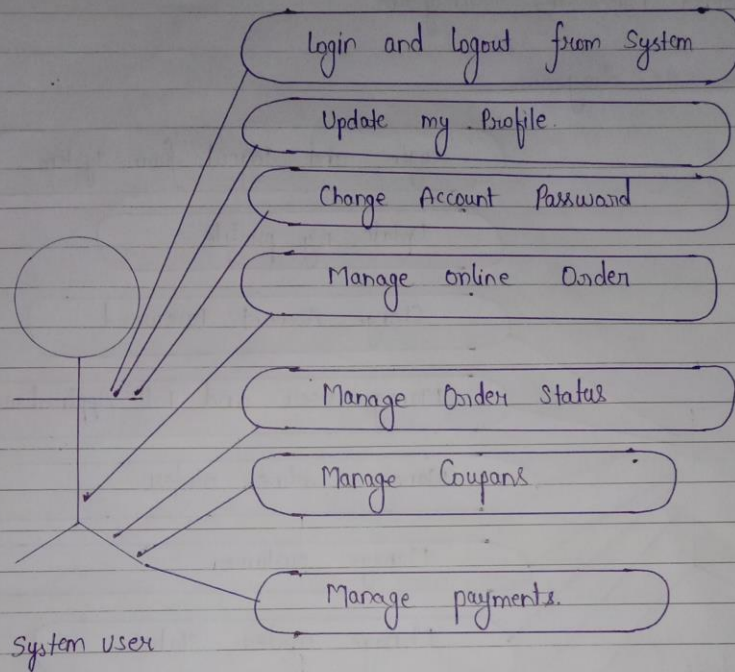 Login and Logout from System
Update my Profile.
Change Account Passward
Manage online Order
Manage Order Status
Manage Coupans
Manage payments.
System user